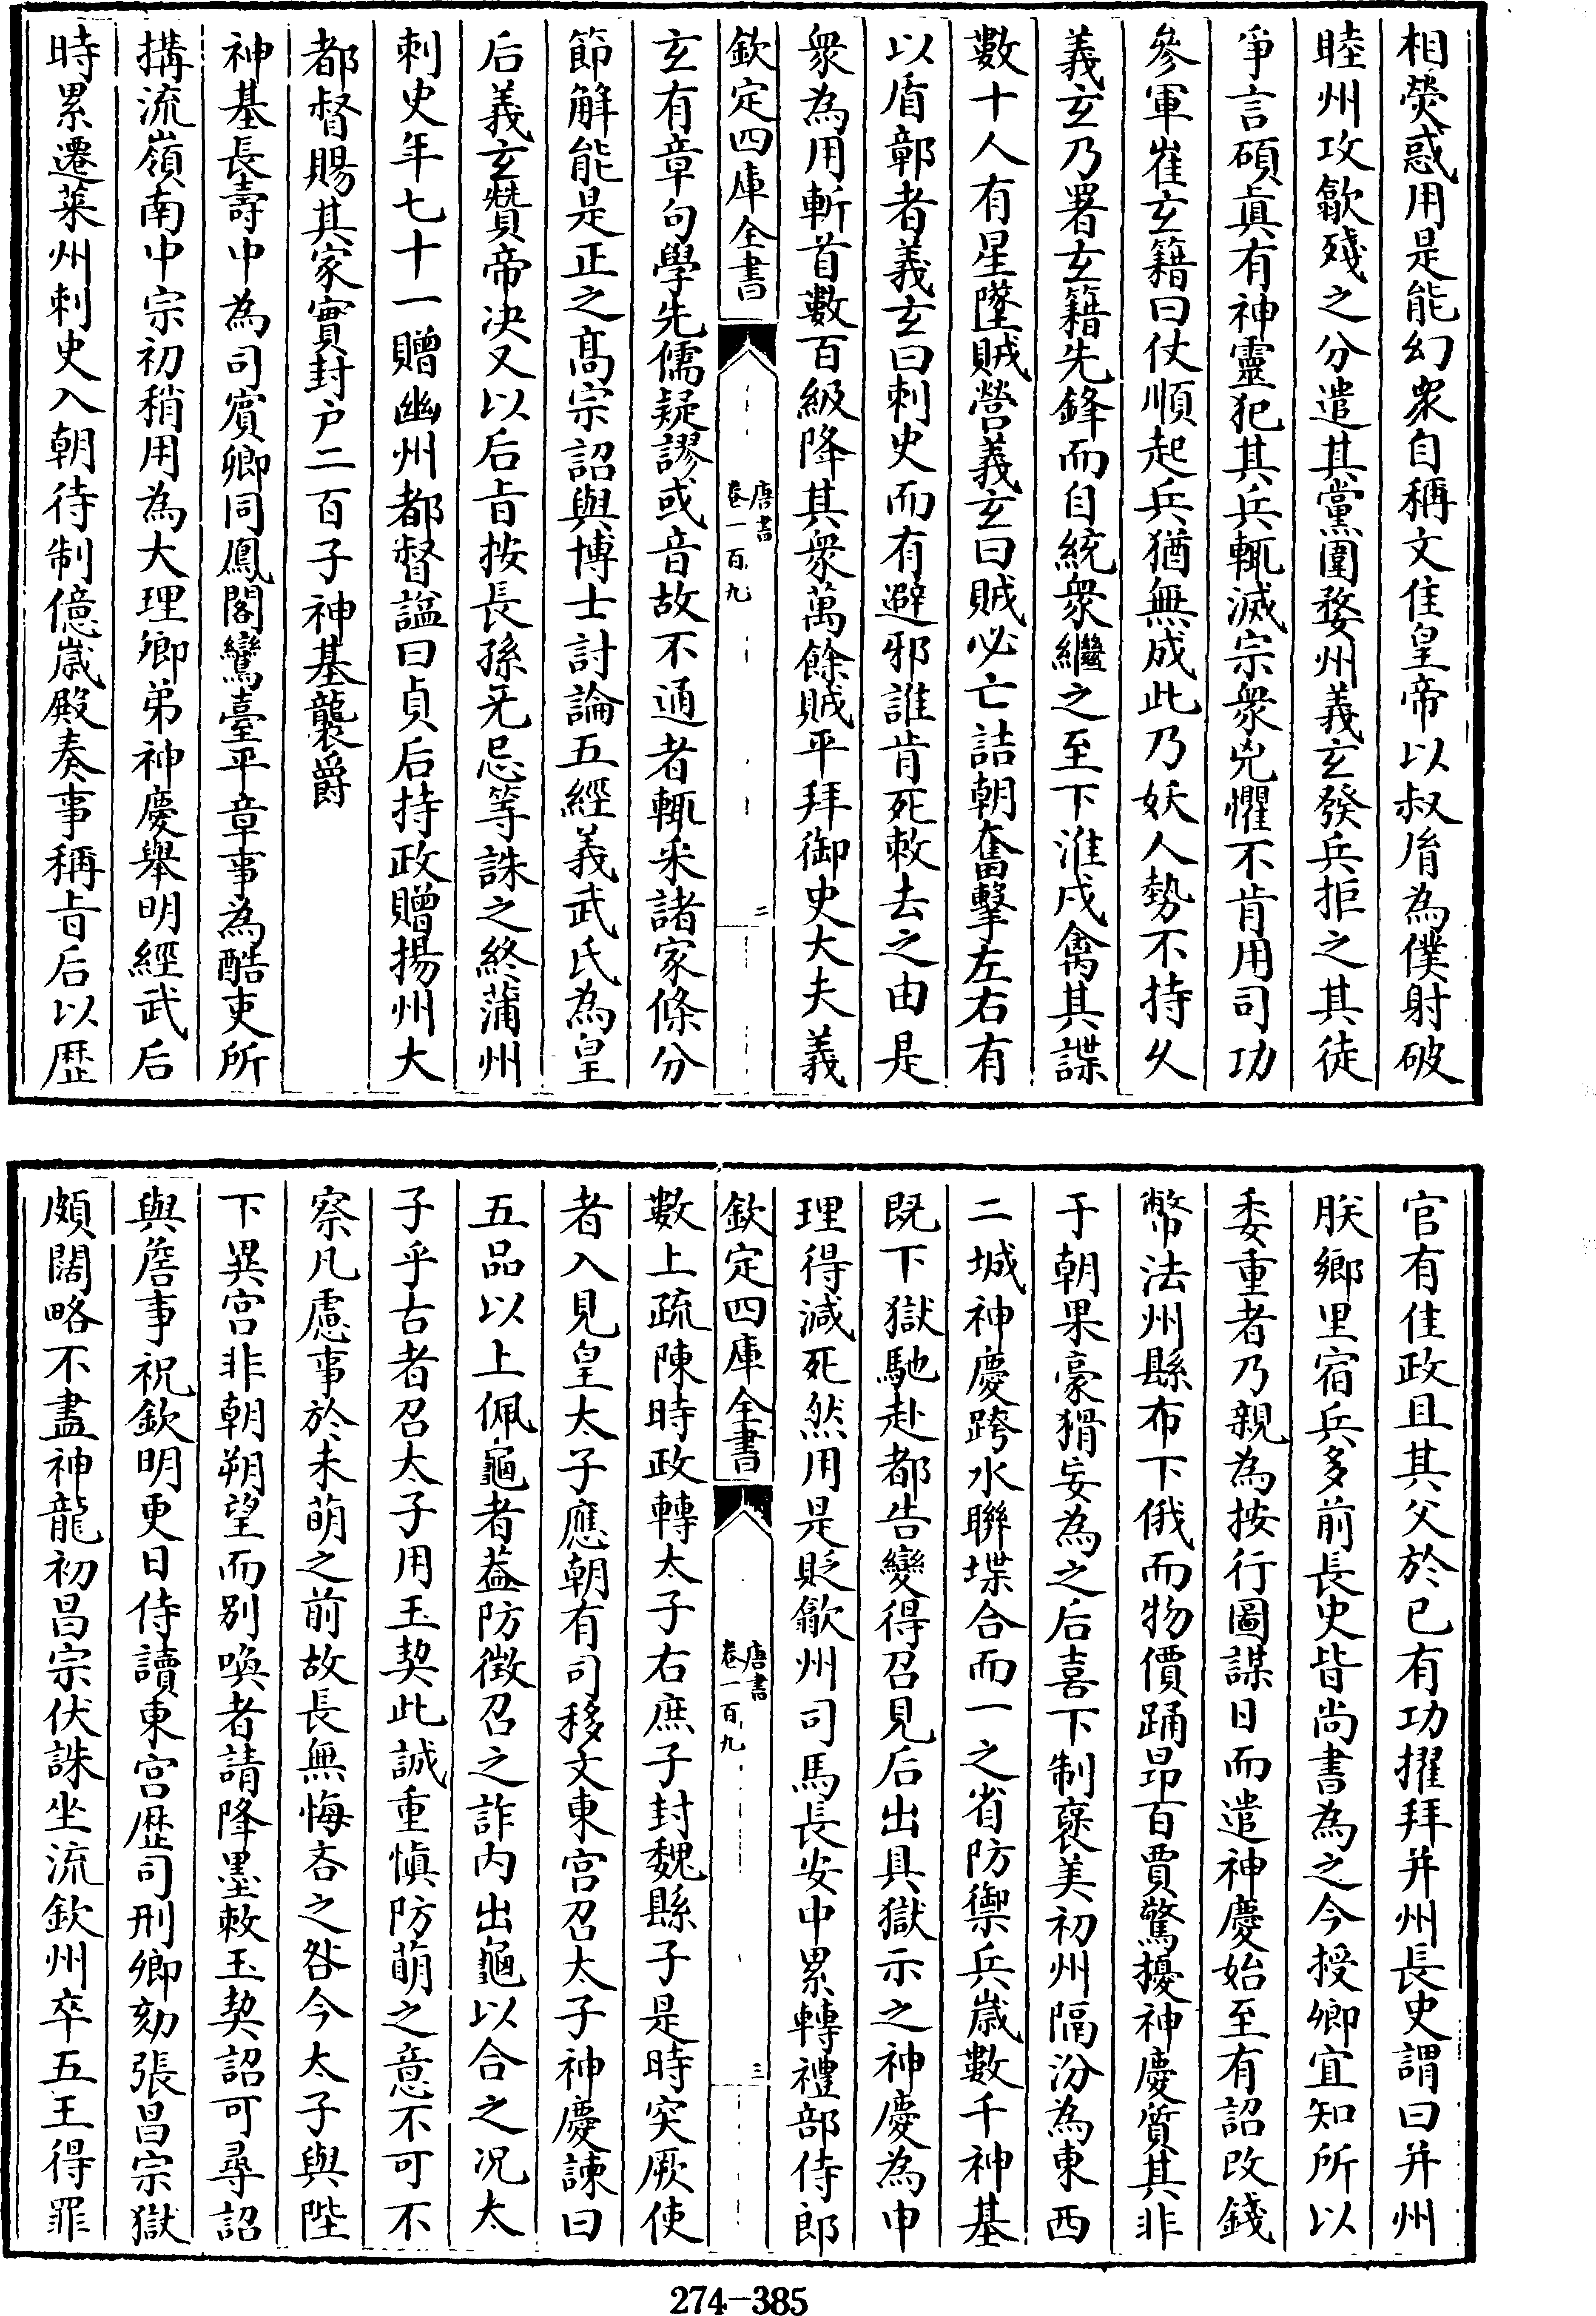 相熒惑用是能幻衆自稱文佳皇帝以叔胤為僕射破
睦州攻歙殘之分遣其黨圍婺州義玄發兵拒之其徒
爭言碩真有神靈犯其兵輒滅宗衆兇懼不肯用司功
參軍崔玄籍曰仗順起兵猶無成此乃妖人勢不持久
義玄乃署玄籍先鋒而自統衆繼之至下淮戍禽其諜
數十人有星墜賊營義玄曰賊必亡詰朝奮擊左右有
以盾鄣者義玄曰刺史而有避邪誰肯死敕去之由是
衆為用斬首數百級降其衆萬餘賊平拜御史大夫義
欽定四庫全書
唐書
卷一百九
二
玄有章句學先儒疑謬或音故不通者輒采諸家條分
節解能是正之髙宗詔與博士討論五經義武氏為皇
后義玄贊帝决又以后㫖按長孫无忌等誅之終蒲州
刺史年七十一贈幽州都督諡曰貞后持政贈揚州大
都督賜其家實封户二百子神基襲爵
神基長壽中為司賓卿同鳳閣鸞臺平章事為酷吏所
搆流嶺南中宗初稍用為大理卿弟神慶舉明經武后
時累遷萊州刺史入朝待制億嵗殿奏事稱㫖后以歴
官有佳政且其父於已有功擢拜并州長史謂曰并州
朕鄉里宿兵多前長史皆尚書為之今授卿宜知所以
委重者乃親為按行圖謀日而遣神慶始至有詔改錢
幣法州縣布下俄而物價踊昂百賈驚擾神慶質其非
于朝果豪猾妄為之后喜下制襃美初州隔汾為東西
二城神慶跨水聯堞合而一之省防禦兵嵗數千神基
既下獄馳赴都告變得召見后出具獄示之神慶為申
理得減死然用是貶歙州司馬長安中累轉禮部侍郎
欽定四庫全書
唐書
卷一百九
三
數上疏陳時政轉太子右庶子封魏縣子是時突厥使
者入見皇太子應朝有司移文東宫召太子神慶諫曰
五品以上佩龜者葢防徴召之詐内出龜以合之况太
子乎古者召太子用玉契此誠重慎防萌之意不可不
察凡慮事於未萌之前故長無悔吝之咎今太子與陛
下異宫非朝朔望而别喚者請降墨敕玉契詔可尋詔
與詹事祝欽明更日侍讀東宫歴司刑卿劾張昌宗獄
頗闊略不盡神龍初昌宗伏誅坐流欽州卒五王得罪
274-385